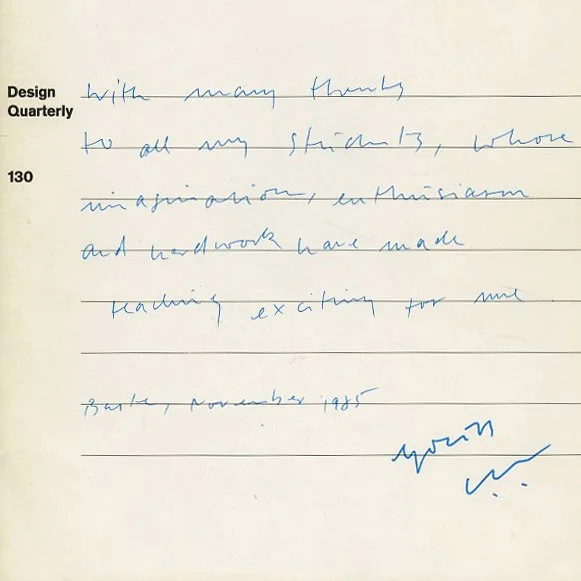 Design
Quarterly
130
with many thanks
to all my students, whose
imagination, enthusiasm
and hardwork have made
teaching exciting for me
Basle, November 1985
yours